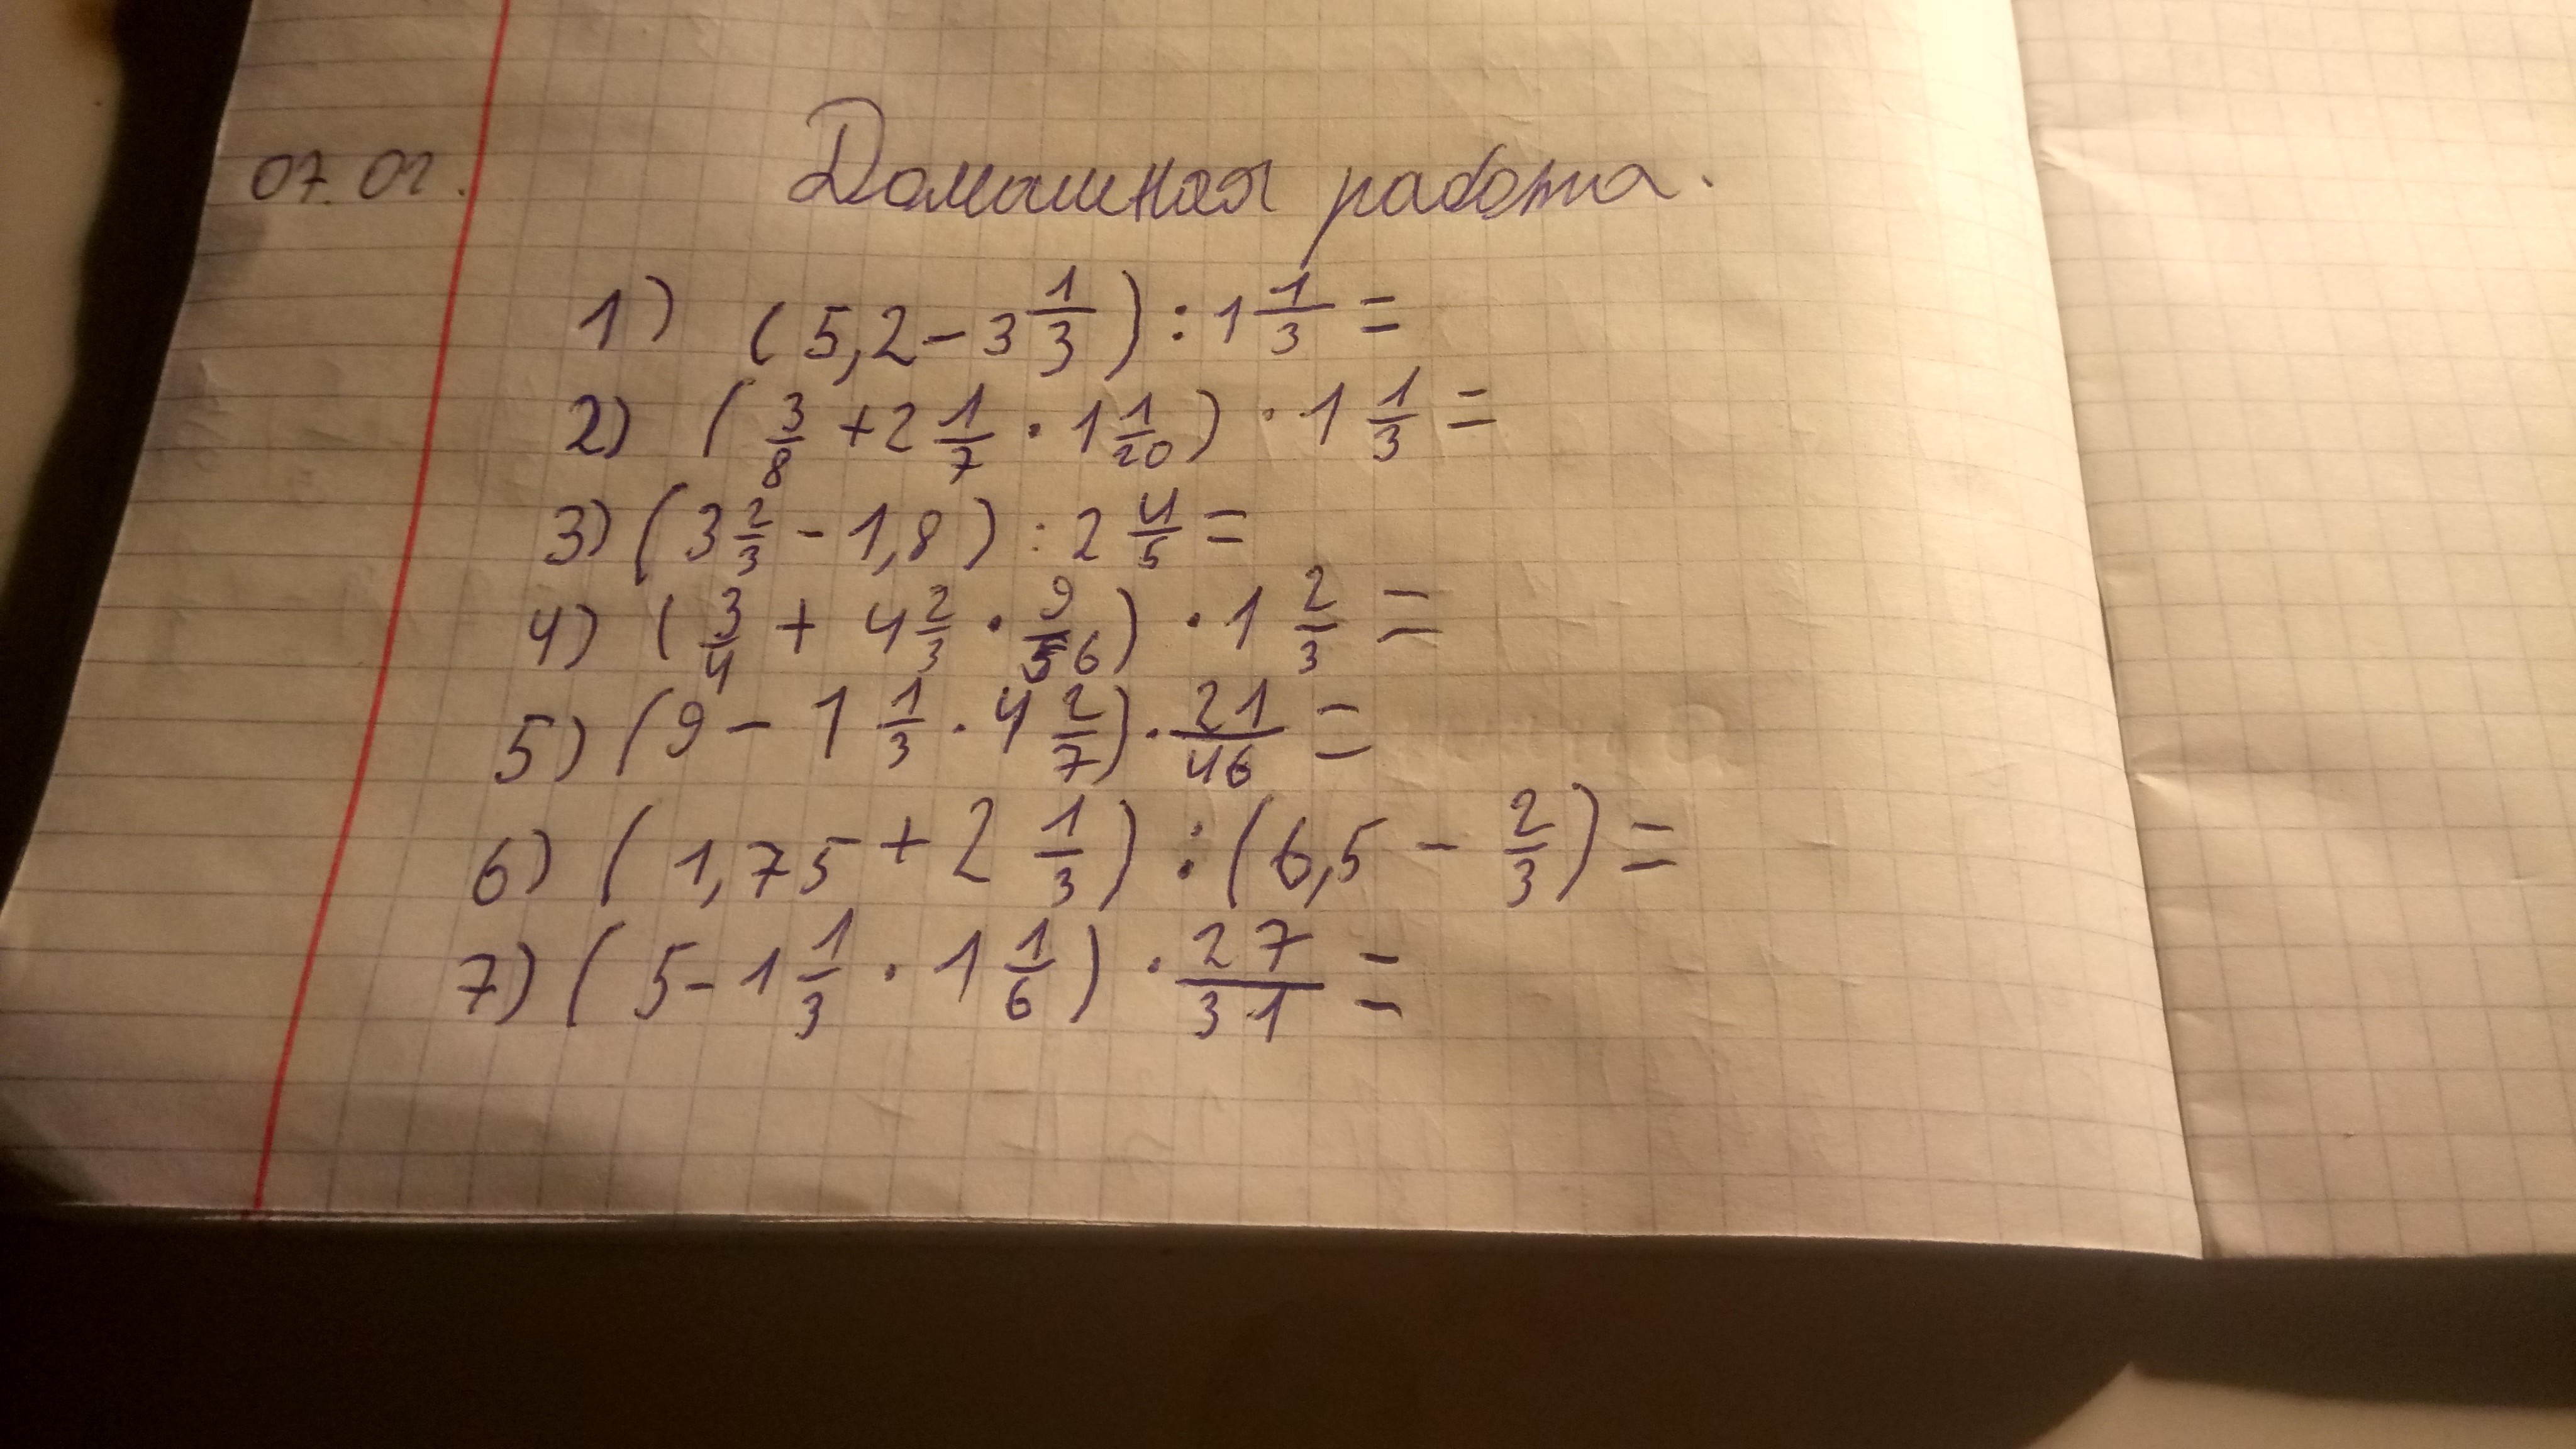 07.02. Домашняя работа.
1) (5,2 - 3 1/3) : 1 1/3 =
2) (3/8 + 2 1/7 · 1 1/20) · 1 1/3 =
3) (3 2/3 - 1,8) : 2 4/5 =
4) (3/4 + 4 2/3 · 9/56) · 1 2/3 =
5) (9 - 1 1/3 · 4 2/7) · 21/46 =
6) (1,75 + 2 1/3) : (6,5 - 2/3) =
7) (5 - 1 1/3 · 1 1/6) · 27/31 =